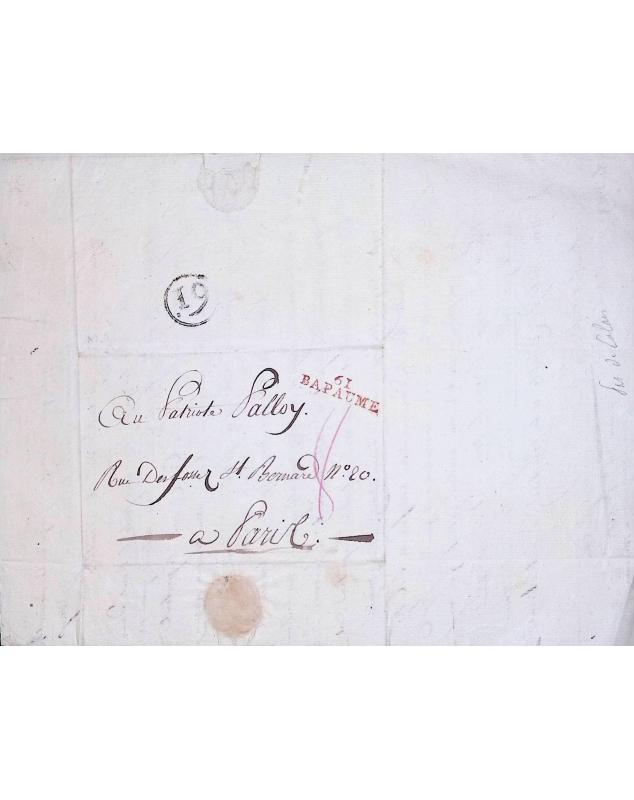 19
61
BAPAUME
Au Patriote Palloy.
Rue Desfossez St. Bernard N° 20.
a Paris.
Pas de Calais